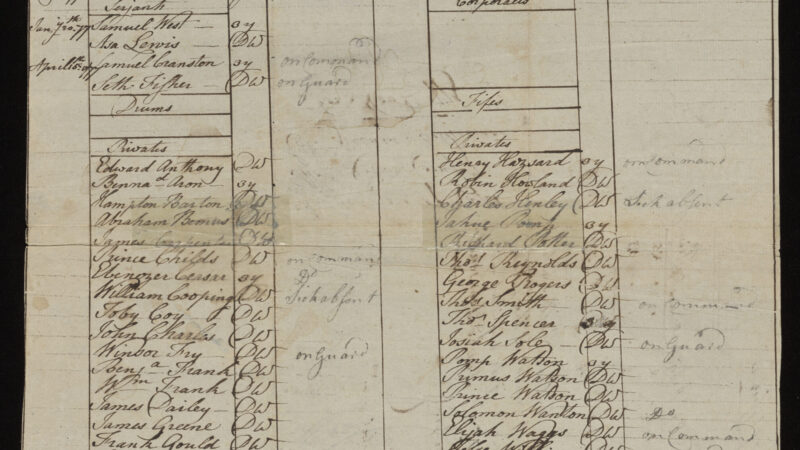 Serjants
Jany 20th 77 Samuel West — 3y
Asa Lewis — DW
April 15th 77 Samuel Cranston 3y on Command
Seth Fisher — DW on Guard
Drums
Privates
Edward Anthony DW
Benna Aron 3y
Hampton Barton DW
Abraham Bomus DW
James Carpenter DW
Prince Childs DW on Command
Ebenezer Ceasar 3y Do
William Cooping DW Sick absent
Toby Coy DW
John Charles DW
Winsor Fry DW on Guard
Benja Frank DW
Wm Frank DW
James Dailey — DW
James Greene DW
Frank Gould DW
Corporals
Fifes
Privates
Henry Hazsard 3y on Command
Robin Howland DW
Charles Henley DW Sick absent
Jahue Pomp 3y
Richard Potter DW
Thos Reynolds DW
George Rogers DW
Thos Smith — DW on Command
Thos Spencer 3y
Josiah Sole — DW on Guard
Pomp Watson 3y
Primus Watson DW
Prince Watson DW
Solomon Wanton DW Do
Elijah Waggs DW on Command